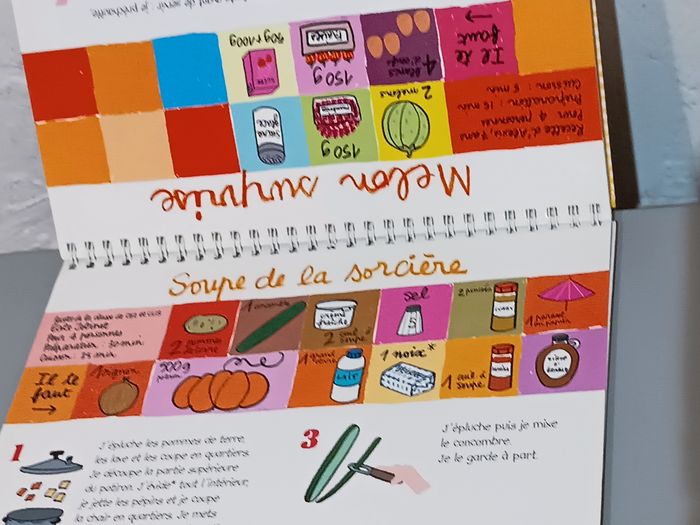 Melon surprise
Recette d'Alexis, 7 ans
Pour 4 personnes
Préparation : 15 min
Cuisson : 5 min
2 melons
150 g
sucre
glace
Il te
faut
4 blancs
d'œufs
150 g
90g + 100g
Soupe de la sorcière
Pour 4 personnes
Préparation : 30 min
Cuisson : 25 min
2 pommes
de terre
1 concombre
crème
fraîche
2 cuil. à
soupe
sel
S
2 pincées
1 parasol
en papier
Il te
faut
1 oignon
500g
1 grand
verre
LAIT
1 noix*
1 cuil. à
soupe
SIROP
D'ÉRABLE
1
J'épluche les pommes de terre,
les lave et les coupe en quartiers.
Je découpe la partie supérieure
du potiron. J'évide* tout l'intérieur,
je jette les pépins et je coupe
la chair en quartiers. Je mets
3
J'épluche puis je mixe
le concombre.
Je le garde à part.